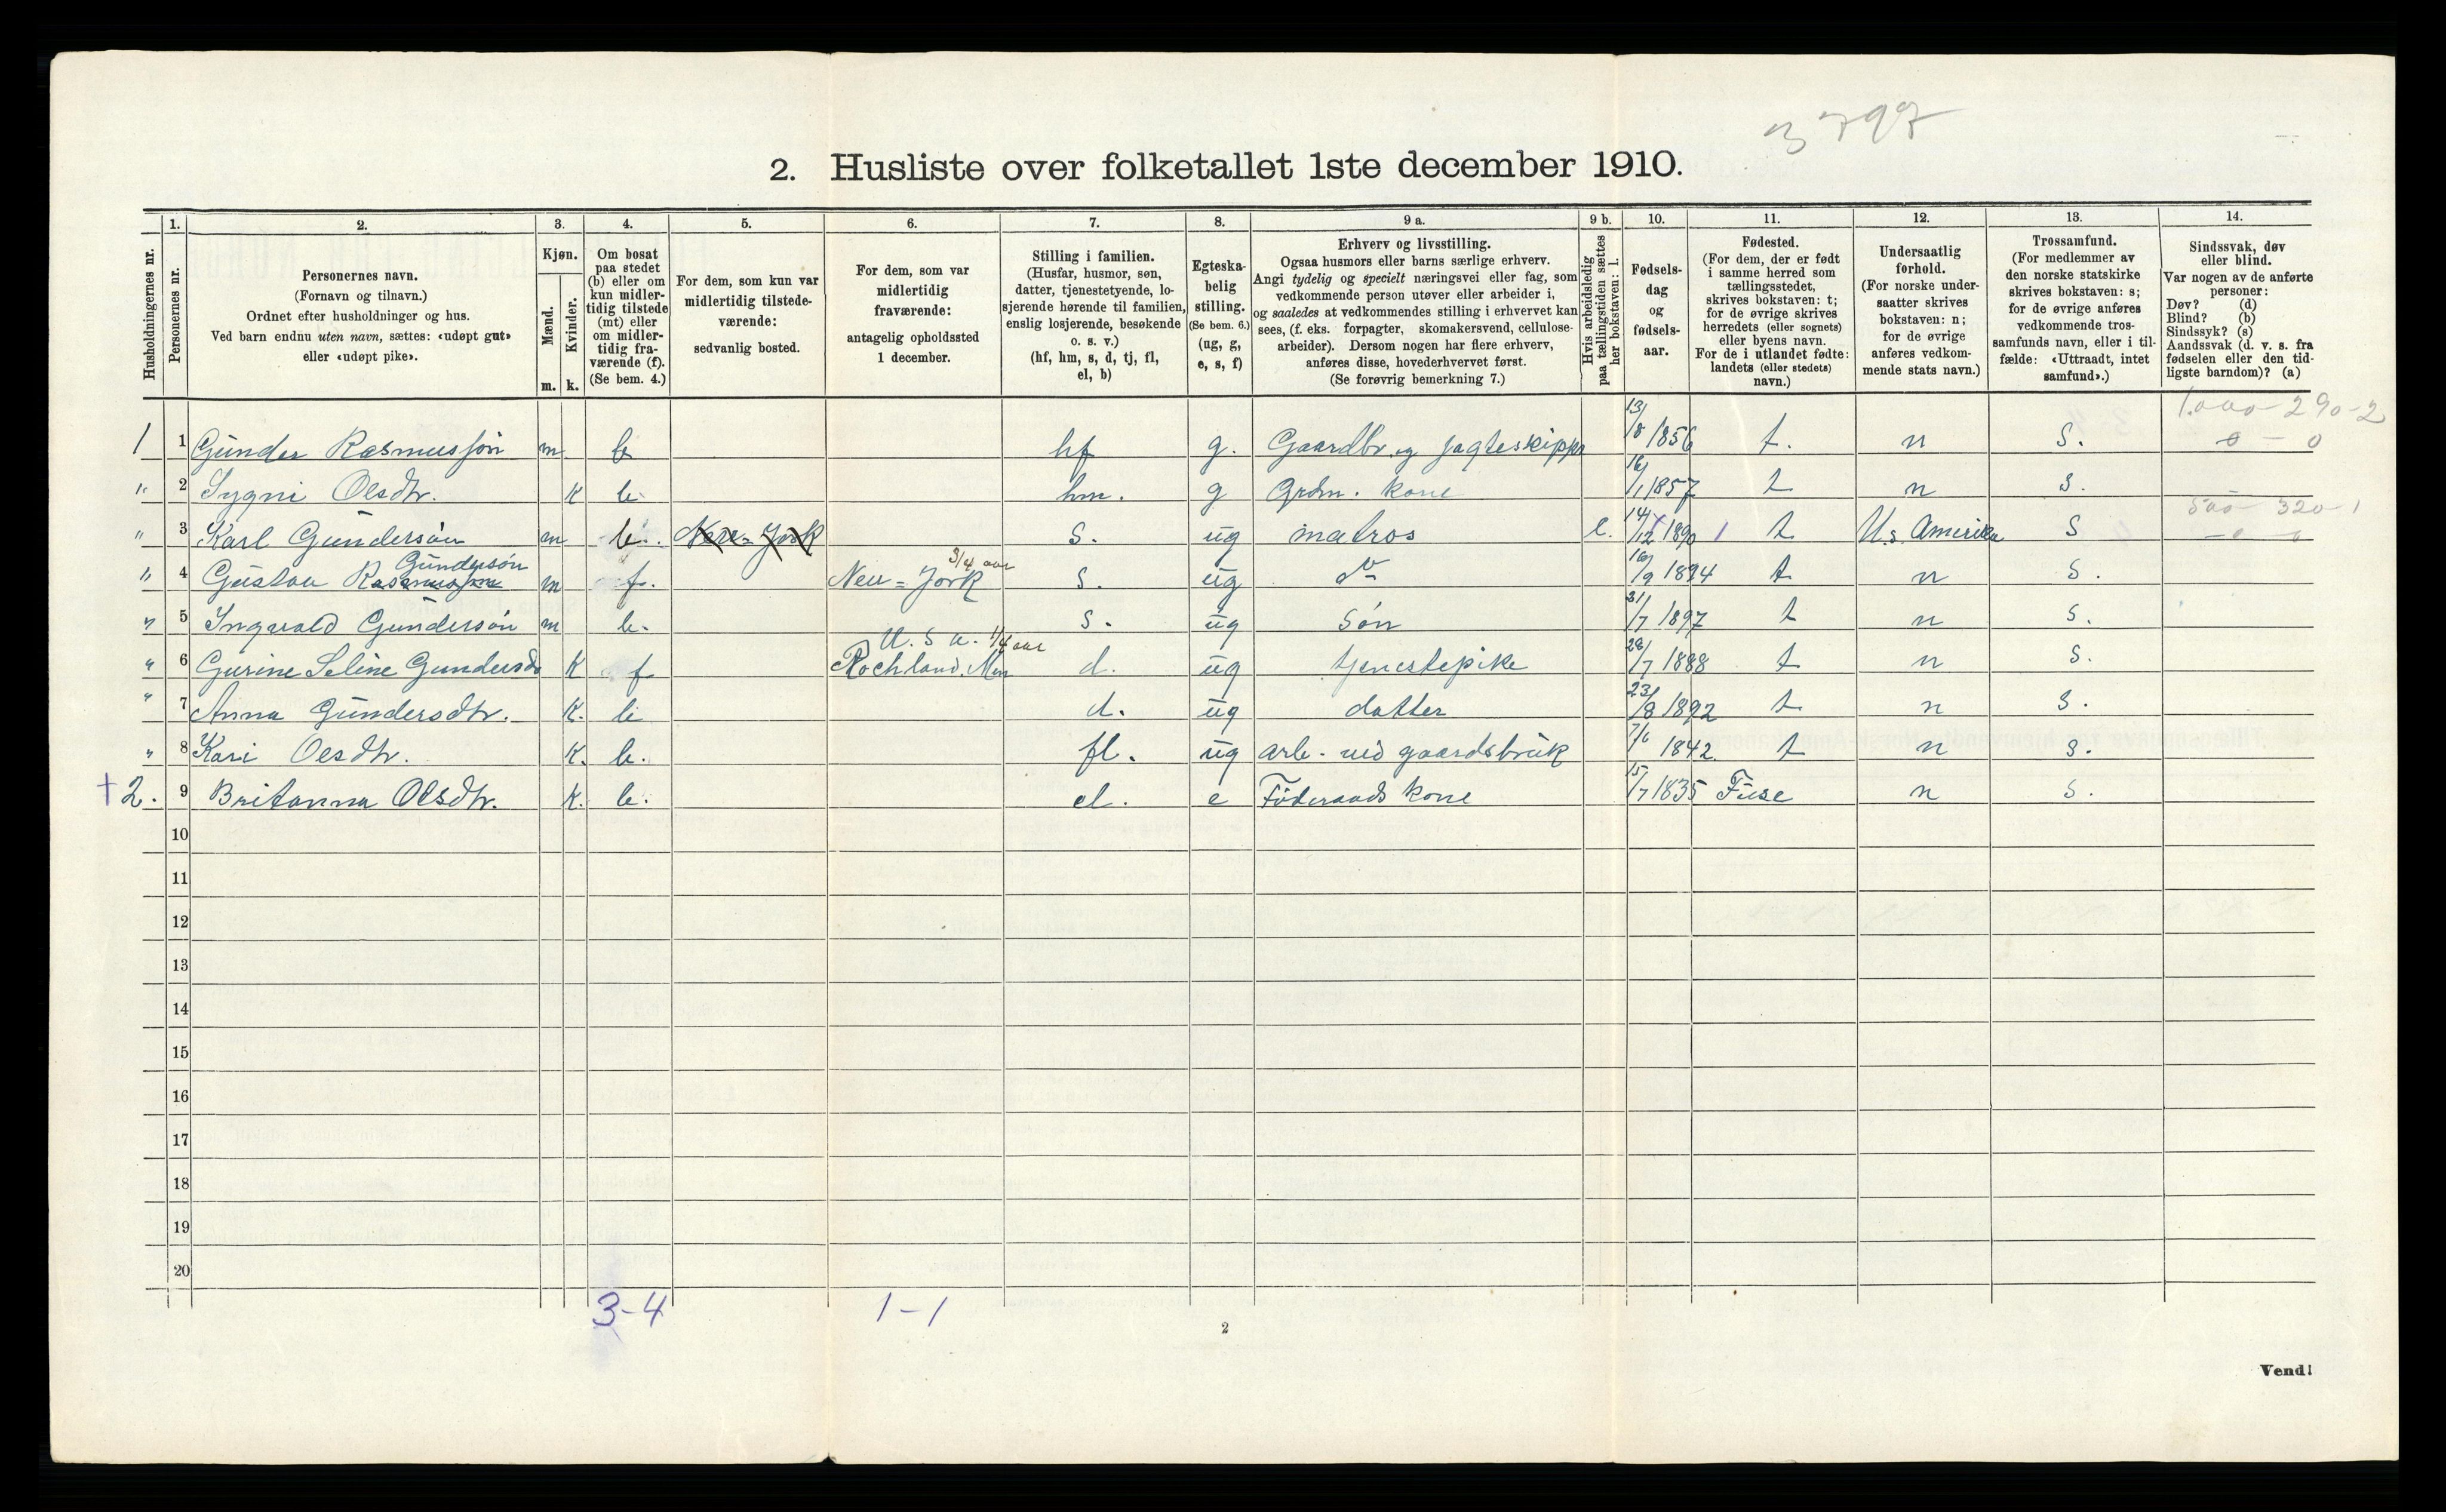 3797
2. Husliste over folketallet 1ste december 1910.
Husholdningernes nr.
1. Personernes nr.
2. Personernes navn.
(Fornavn og tilnavn.)
Ordnet efter husholdninger og hus.
Ved barn endnu uten navn, sættes: «udøpt gut»
eller «udøpt pike».
3. Kjøn.
Mænd. m.
Kvinder. k.
4. Om bosat
paa stedet
(b) eller om
kun midler-
tidig tilstede
(mt) eller
om midler-
tidig fra-
værende (f).
(Se bem. 4.)
5. For dem, som kun var
midlertidig tilstede-
værende:
sedvanlig bosted.
6. For dem, som var
midlertidig
fraværende:
antagelig opholdssted
1 december.
7. Stilling i familien.
(Husfar, husmor, søn,
datter, tjenestetyende, lo-
sjerende hørende til familien,
enslig losjerende, besøkende
o. s. v.)
(hf, hm, s, d, tj, fl,
el, b)
8. Egteska-
belig
stilling.
(Se bem. 6.)
(ug, g,
e, s, f)
9 a. Erhverv og livsstilling.
Ogsaa husmors eller barns særlige erhverv.
Angi tydelig og specielt næringsvei eller fag, som
vedkommende person utøver eller arbeider i,
og saaledes at vedkommendes stilling i erhvervet kan
sees, (f. eks. forpagter, skomakersvend, cellulose-
arbeider). Dersom nogen har flere erhverv,
anføres disse, hovederhvervet først.
(Se forøvrig bemerkning 7.)
9 b. Hvis arbeidsledig
paa tællingstiden sættes
her bokstaven: l.
10. Fødsels-
dag
og
fødsels-
aar.
11. Fødested.
(For dem, der er født
i samme herred som
tællingsstedet,
skrives bokstaven: t;
for de øvrige skrives
herredets (eller sognets)
eller byens navn.
For de i utlandet fødte:
landets (eller stedets)
navn.)
12. Undersaatlig
forhold.
(For norske under-
saatter skrives
bokstaven: n;
for de øvrige
anføres vedkom-
mende stats navn.)
13. Trossamfund.
(For medlemmer av
den norske statskirke
skrives bokstaven: s;
for de øvrige anføres
vedkommende tros-
samfunds navn, eller i til-
fælde: «Uttraadt, intet
samfund».)
14. Sindssvak, døv
eller blind.
Var nogen av de anførte
personer:
Døv? (d)
Blind? (b)
Sindssyk? (s)
Aandssvak (d. v. s. fra
fødselen eller den tid-
ligste barndom)? (a)
1.000 - 290 - 2
1 1 Gunder Rasmussøn m b hf g. Gaardbr. og jagteskipper 13/8 1856 t. n s. 0 - 0
" 2 Sygni Olsdtr. K b hm. g Grdm. kone 16/1 1857 t n s.
500 - 320 - 1
" 3 Karl Gundersøn m b. New-York s. ug matros l. 14/12 1890 t U.s. Amerika s - 0 0
Gundersøn 3/4 aar
" 4 Gustav Rasmussøn m f. New=York s. ug do 16/9 1894 t n s.
" 5 Ingvald Gundersøn m b. s. ug søn 31/7 1897 t n s.
U. S a. 1/4 aar
" 6 Gurine Seline Gundersd K f. Rochland. d. ug tjenestepike 28/7 1888 t n s.
" 7 Anna Gundersdtr. K. b d. ug datter 23/8 1892 t n s.
" 8 Kari Olsdtr. K. b. fl. ug arb. ved gaardsbruk 7/6 1842. t n s.
+ 2. 9 Britanna Olsdtr. K. b. el. e Føderaads kone 15/7 1835 Fuse n s.
10
11
12
13
14
15
16
17
18
19
20
3-4 1-1
2
Vend!